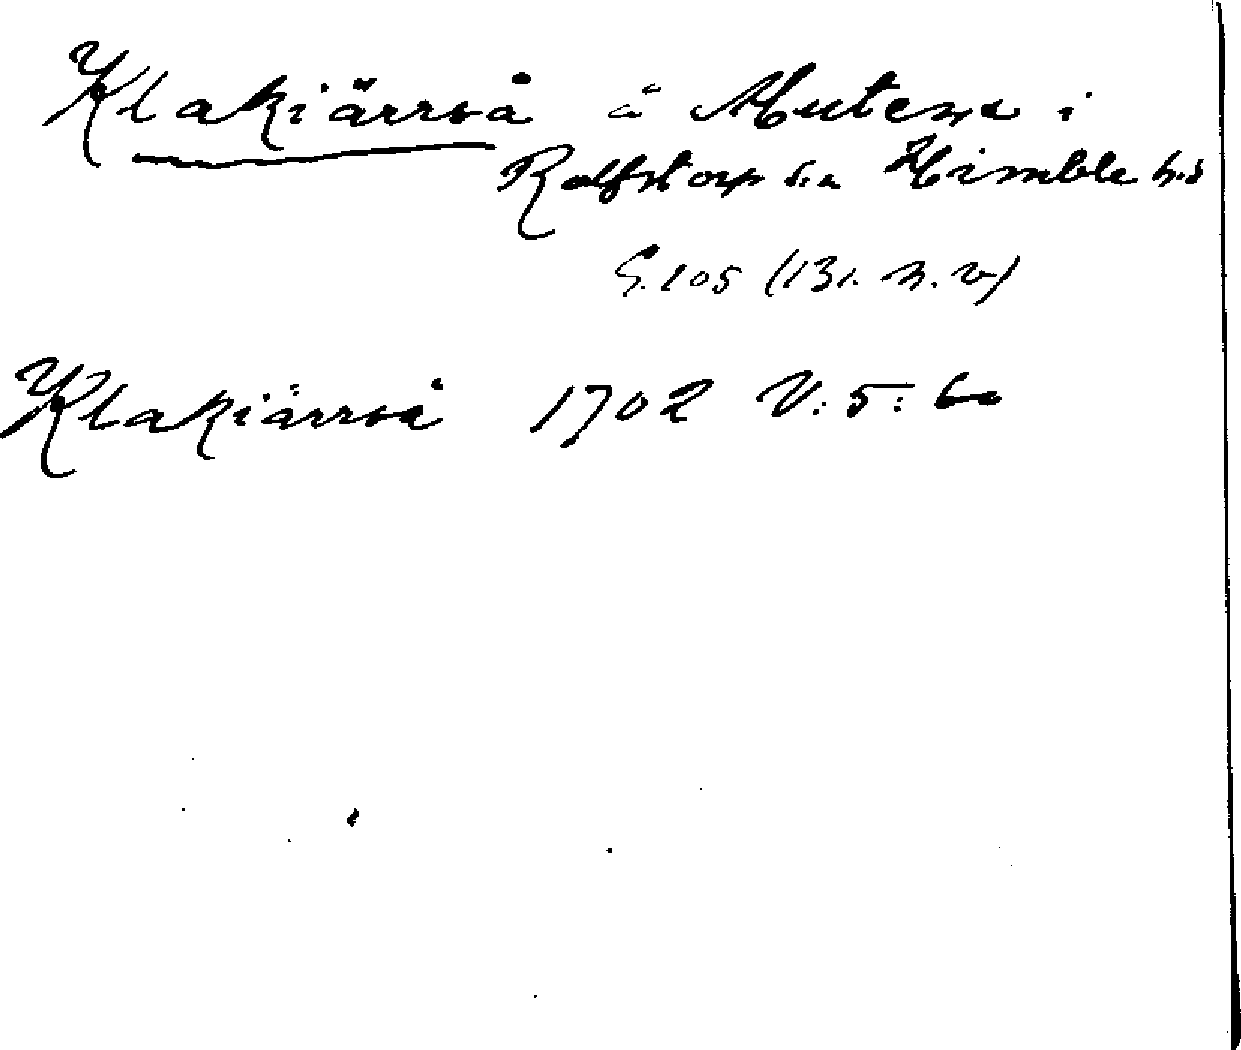 Klakiärrså å Mutene i
Rolfstorp sn Himble hd
S. 105 (131. n. v)
Klakiärrså 1702 V: 5: 60